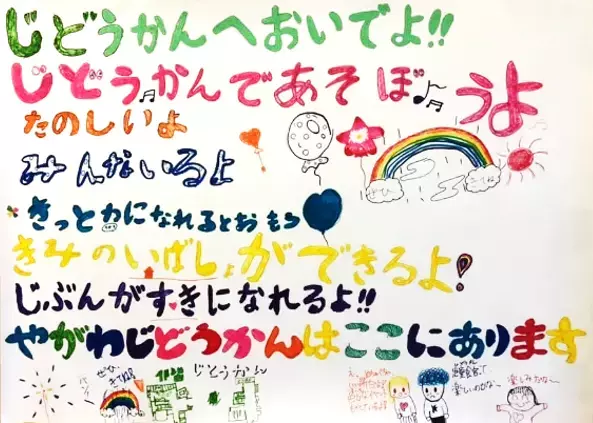 じどうかんへおいでよ!!
じどうかんであそぼ♪うよ
たのしいよ
みんないるよ
きっと力になれるとおもう
きみのいばしょができるよ!
じぶんがすきになれるよ!!
やがわじどうかんはここにあります
ぜひ
じどうかん
楽しみかな〜